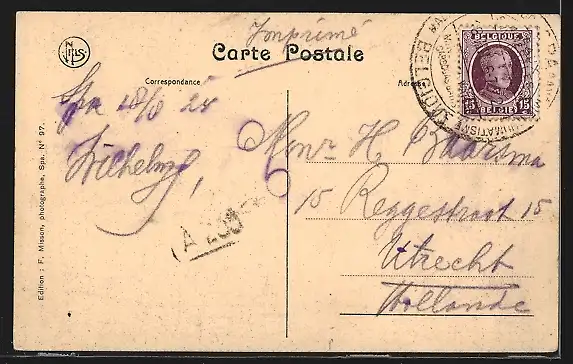 Imprimé
Carte Postale
Correspondance
Adresse
BELGIQUE
15 15
BELGIË
Spa 28/8 24
Wilhelmy,
A 230
Monr H. Baarsma
15 Reggestraat 15
Utrecht
Hollande
Edition : F. Misson, photographe, Spa. N° 97.